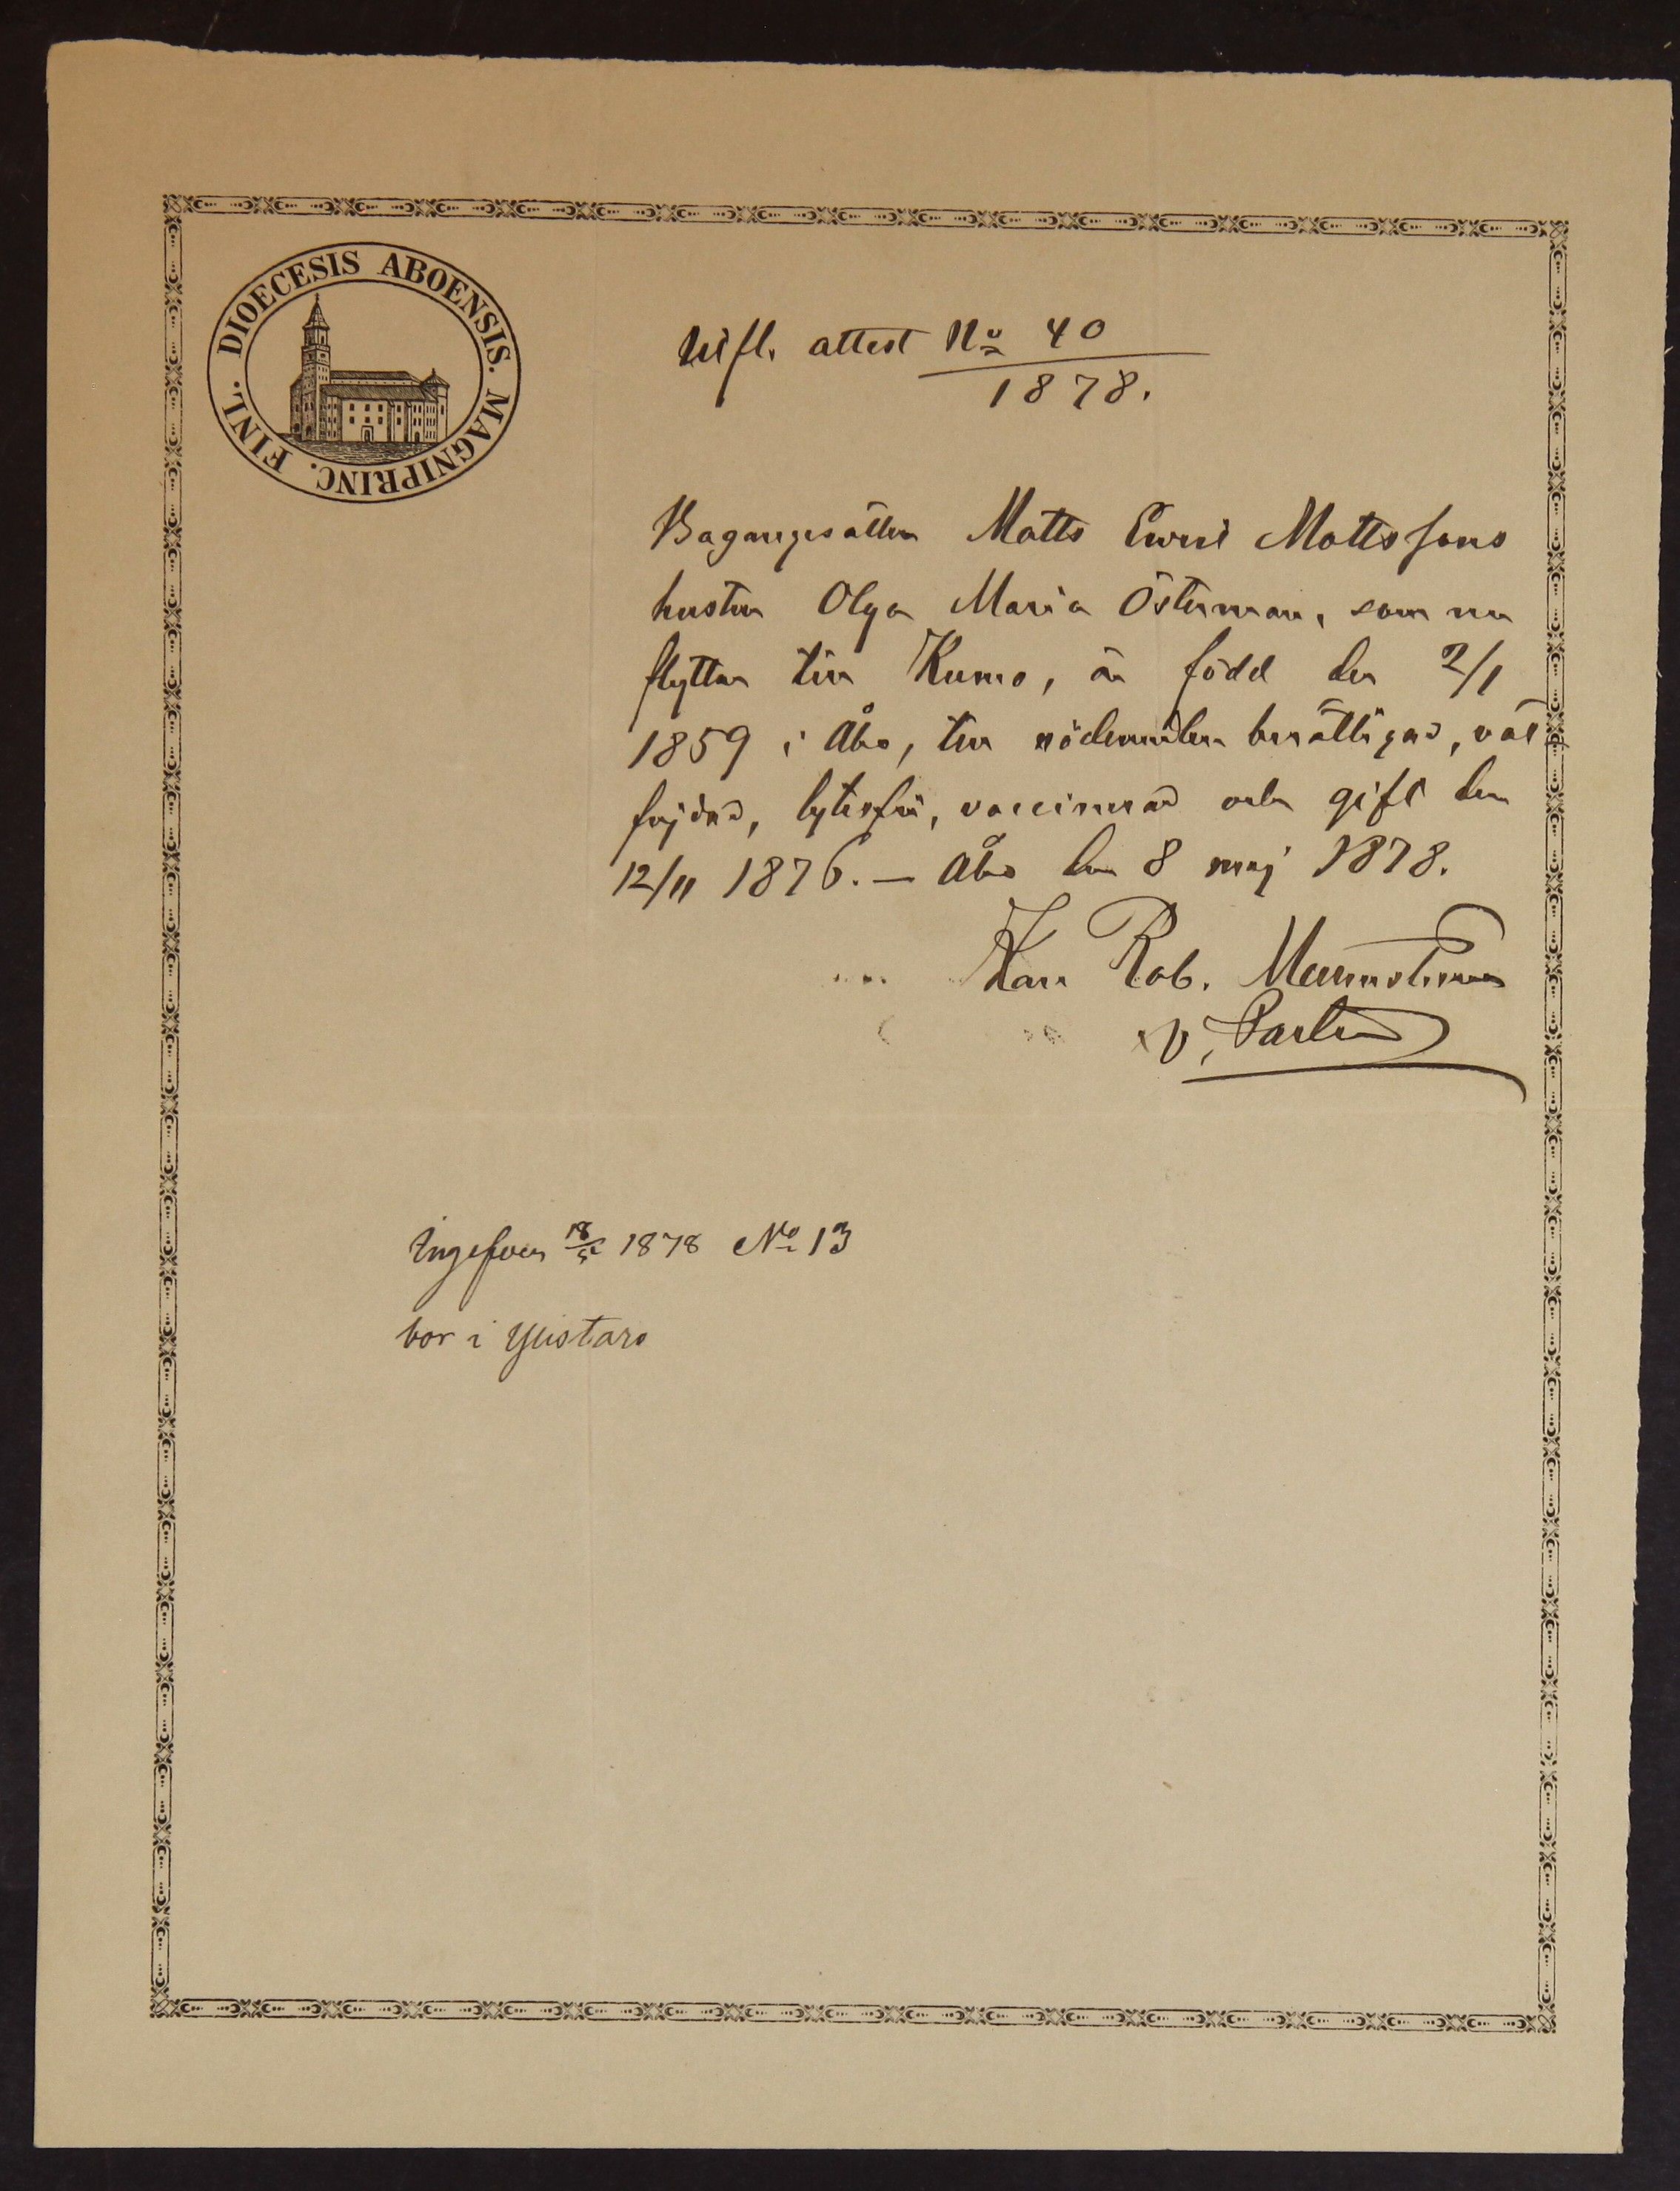 DIOECESIS ABOENSIS. MAGNIPRINC. FINL.
Utfl. attest No 40
1878.
Bagaregesällen Matts Emil Mattssons
hustru Olga Maria Österman, som nu
flyttar till Kumo, är född den 2/1
1859 i Åbo, till nådemedlen berättigad, väl
frejdad, lytesfri, vaccinerad och gift den
12/11 1876. — Åbo den 8 maj 1878.
Karl Rob.
v. Pastor
Ingifven 18/5 1878 No 13
bor i Ylistaro